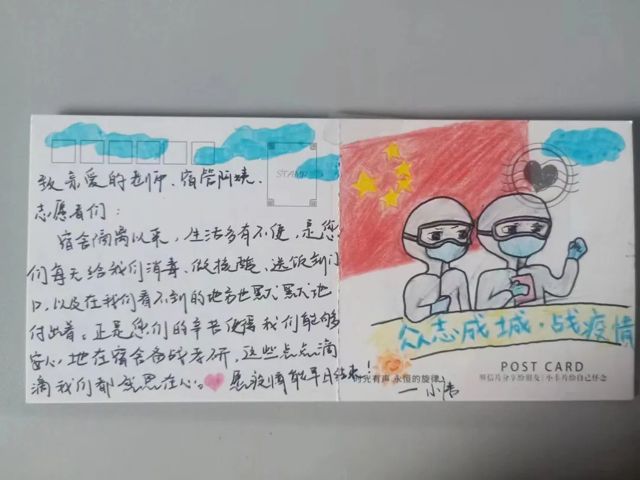 STAMP
致亲爱的老师、宿管阿姨、
志愿者们：
宿舍隔离以来，生活多有不便，是您
们每天给我们消毒、做核酸、送饭到门
口，以及在我们看不到的地方也默默地
付出着。正是您们的辛苦使得我们能够
安心地在宿舍备战考研，这些点点滴
滴我们都感恩在心。愿疫情能早日结束！
众志成城·战疫情
POST CARD
明信片分享给朋友|小卡片给自己怀念
时光有声 永恒的旋律